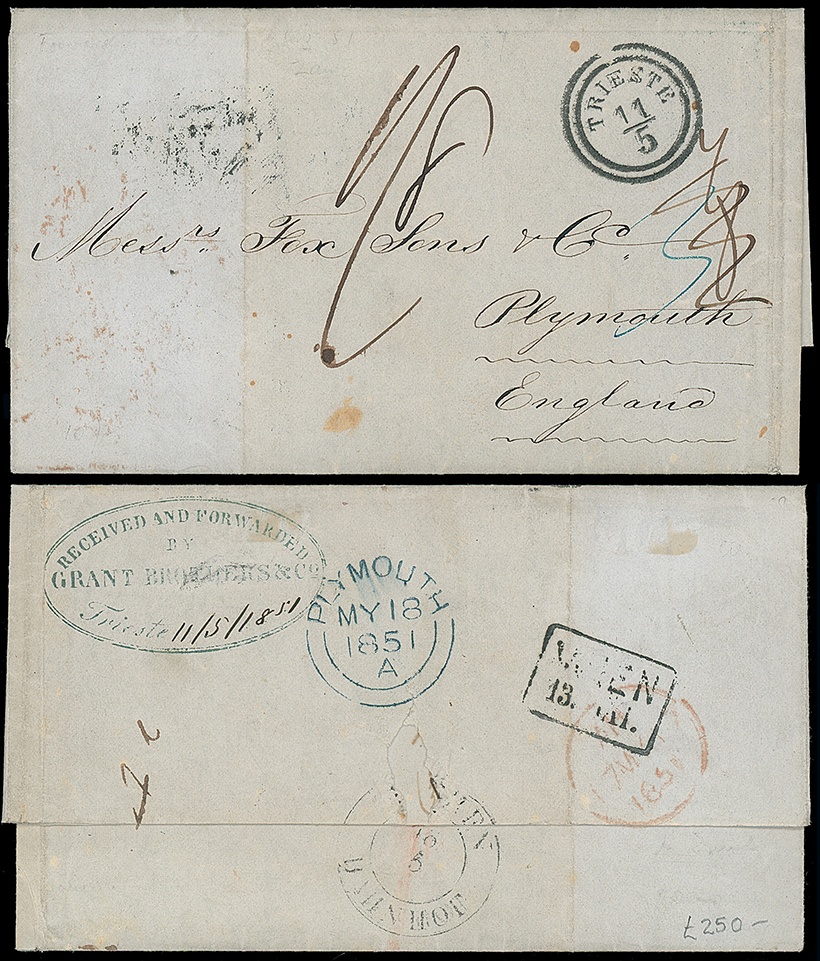 TRIESTE
11/5
Messrs Fox Sons & Co.
Plymouth
England
RECEIVED AND FORWARDED
BY
GRANT BROTHERS & Co
Trieste 11/5/1851
PLYMOUTH
MY 18
1851
A
13.
1851
£250-